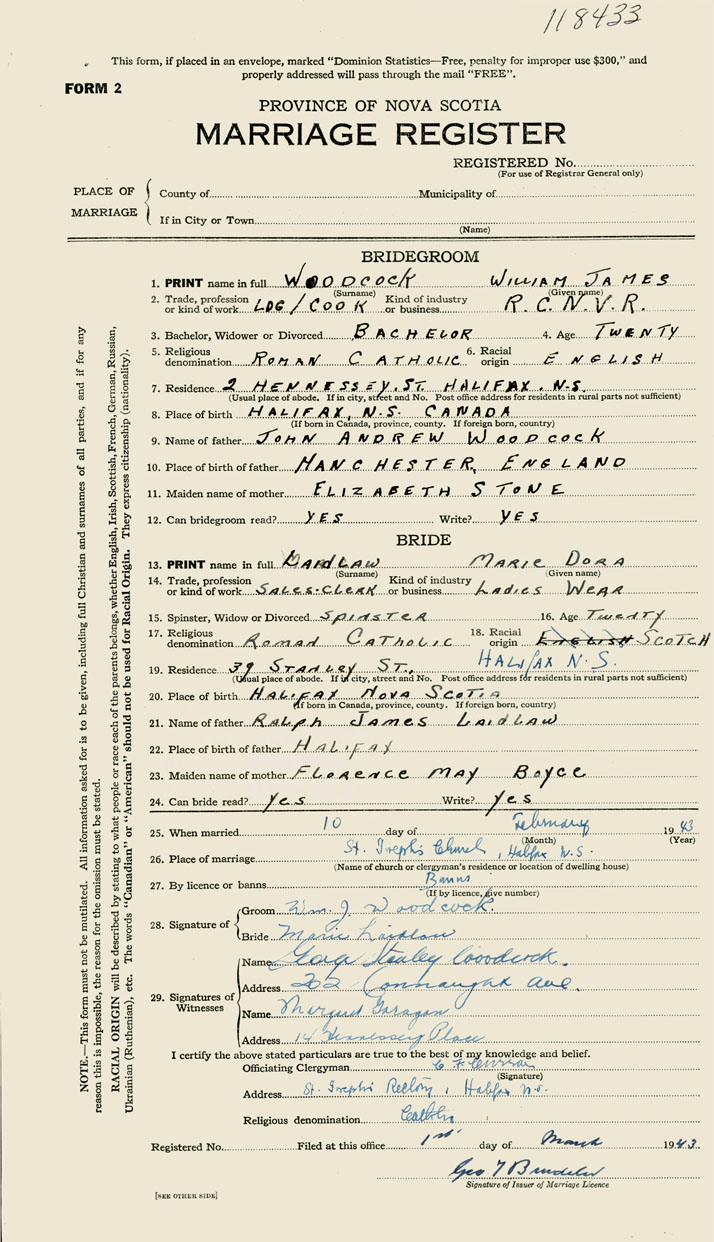 118433
This form, if placed in an envelope, marked "Dominion Statistics—Free, penalty for improper use $300," and
properly addressed will pass through the mail "FREE".
FORM 2
PROVINCE OF NOVA SCOTIA
MARRIAGE REGISTER
REGISTERED No.
(For use of Registrar General only)
PLACE OF MARRIAGE
County of Municipality of
If in City or Town
(Name)
BRIDEGROOM
1. PRINT name in full WOODCOCK WILLIAM JAMES
(Surname) (Given name)
2. Trade, profession or kind of work LDG/COOK Kind of industry or business R.C.N.V.R.
3. Bachelor, Widower or Divorced BACHELOR 4. Age TWENTY
5. Religious denomination ROMAN CATHOLIC 6. Racial origin ENGLISH
7. Residence 2 HENNESSEY. ST. HALIFAX. N.S.
(Usual place of abode. If in city, street and No. Post office address for residents in rural parts not sufficient)
8. Place of birth HALIFAX, N.S. CANADA
(If born in Canada, province, county. If foreign born, country)
9. Name of father JOHN ANDREW WOODCOCK
10. Place of birth of father MANCHESTER, ENGLAND
11. Maiden name of mother ELIZABETH STONE
12. Can bridegroom read? YES Write? YES
BRIDE
13. PRINT name in full LAIDLAW MARIE DORA
(Surname) (Given name)
14. Trade, profession or kind of work SALES-CLERK Kind of industry or business LADIES WEAR
15. Spinster, Widow or Divorced SPINSTER 16. Age TWENTY
17. Religious denomination ROMAN CATHOLIC 18. Racial origin ENGLISH SCOTCH
19. Residence 39 STANLEY ST., HALIFAX N.S.
(Usual place of abode. If in city, street and No. Post office address for residents in rural parts not sufficient)
20. Place of birth HALIFAX NOVA SCOTIA
(If born in Canada, province, county. If foreign born, country)
21. Name of father RALPH JAMES LAIDLAW
22. Place of birth of father HALIFAX
23. Maiden name of mother FLORENCE MAY BOYCE
24. Can bride read? Yes Write? Yes
25. When married 10 day of February 1943
(Month) (Year)
26. Place of marriage St. Joseph's Church, Halifax N.S.
(Name of church or clergyman's residence or location of dwelling house)
27. By licence or banns Banns
(If by licence, give number)
28. Signature of
Groom Wm. J. Woodcock.
Bride Marie Laidlaw
29. Signatures of Witnesses
Name George Stanley Woodcock.
Address 202 Connaught Ave.
Name Margaret
Address 14 Hennessey Place
I certify the above stated particulars are true to the best of my knowledge and belief.
Officiating Clergyman C F Curran
(Signature)
Address St. Joseph's Rectory, Halifax N.S.
Religious denomination Catholic
Registered No. Filed at this office 1st day of March 1943
Geo
Signature of Issuer of Marriage Licence
[SEE OTHER SIDE]
NOTE.—This form must not be mutilated. All information asked for is to be given, including full Christian and surnames of all parties, and if for any
reason this is impossible, the reason for the omission must be stated.
RACIAL ORIGIN will be described by stating to what people or race each of the parents belongs, whether English, Irish, Scottish, French, German, Russian,
Ukrainian (Ruthenian), etc. The words "Canadian" or "American" should not be used for Racial Origin. They express citizenship (nationality).